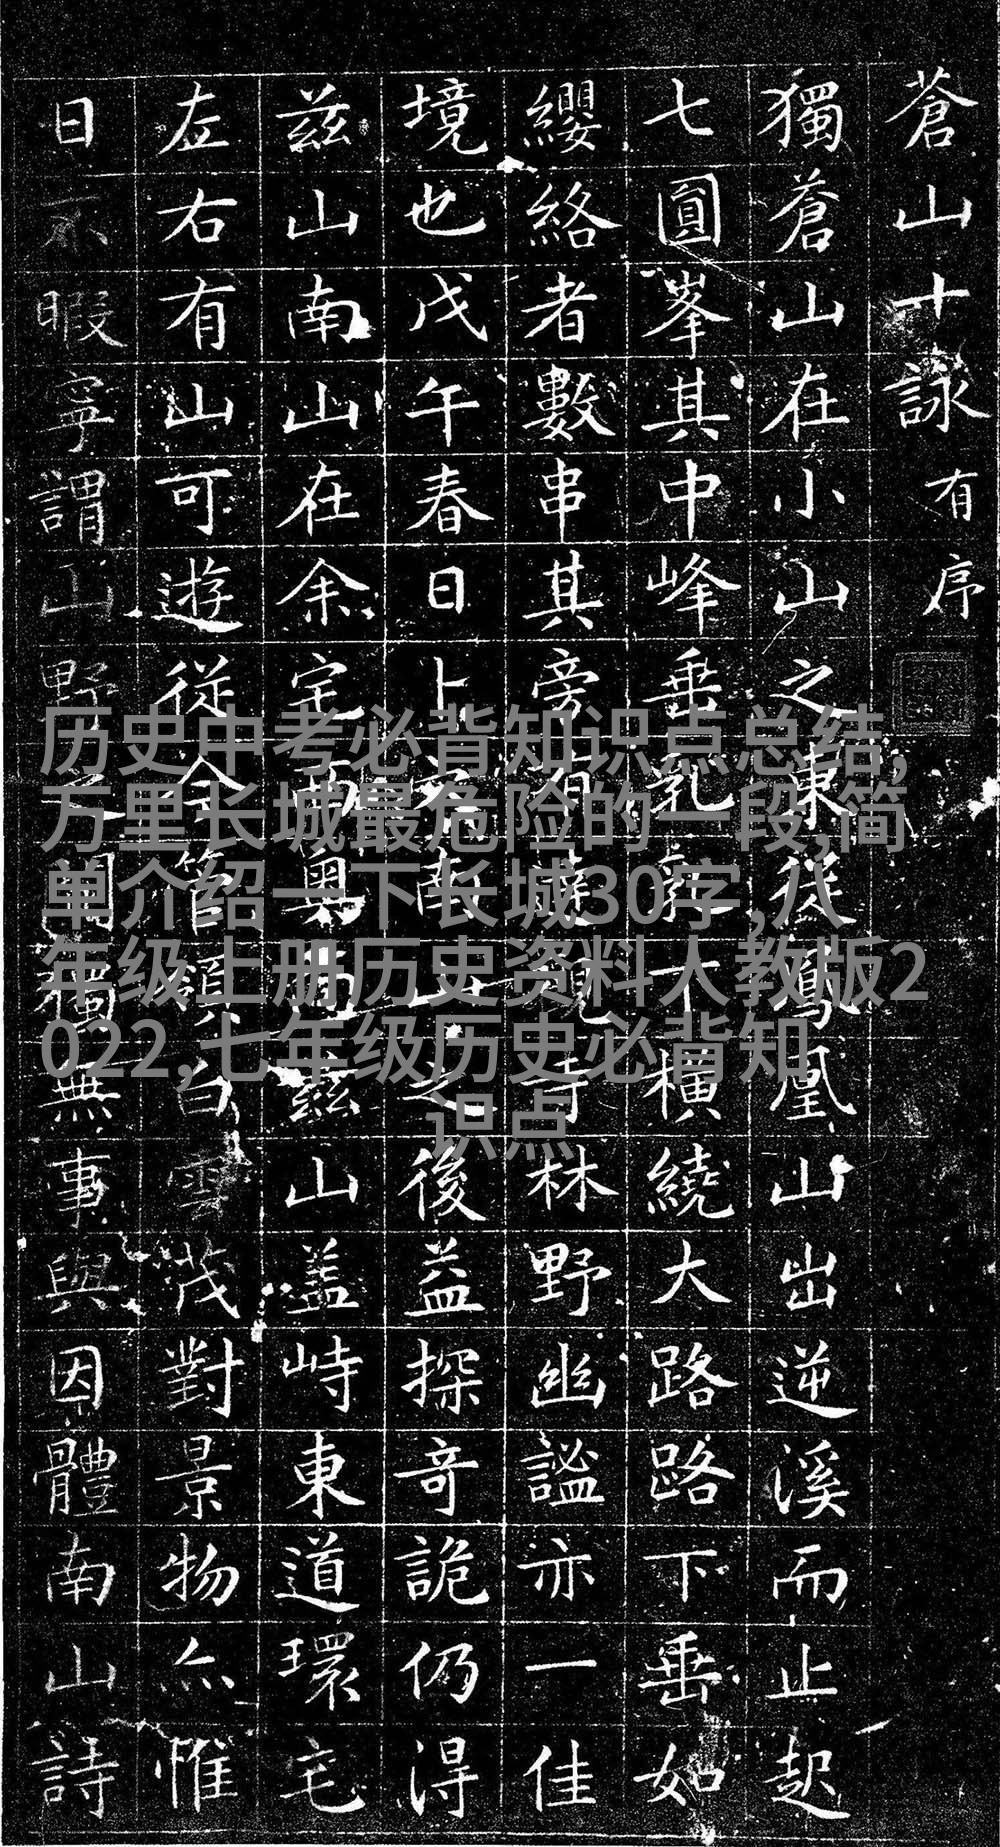 蒼山十詠有序
獨蒼山在小山之東從鳳凰山出逆溪而止起
七圓峯其中峰垂乳下橫繞大路路下垂如
纓絡者數串其旁有寺林野幽謐亦一佳
境也戊午春日卜南山之後益探奇詭仍得
茲山南山在余宅西奥茲山盖峙東道環宅
左右有山可遊從余管領白雲茂對景物亦惟
日不暇寧謂山野之獨無事與因體南山詩
历史中考必背知识点总结,
万里长城最危险的一段,简
单介绍一下长城30字,八
年级上册历史资料人教版2
022,七年级历史必背知
识点